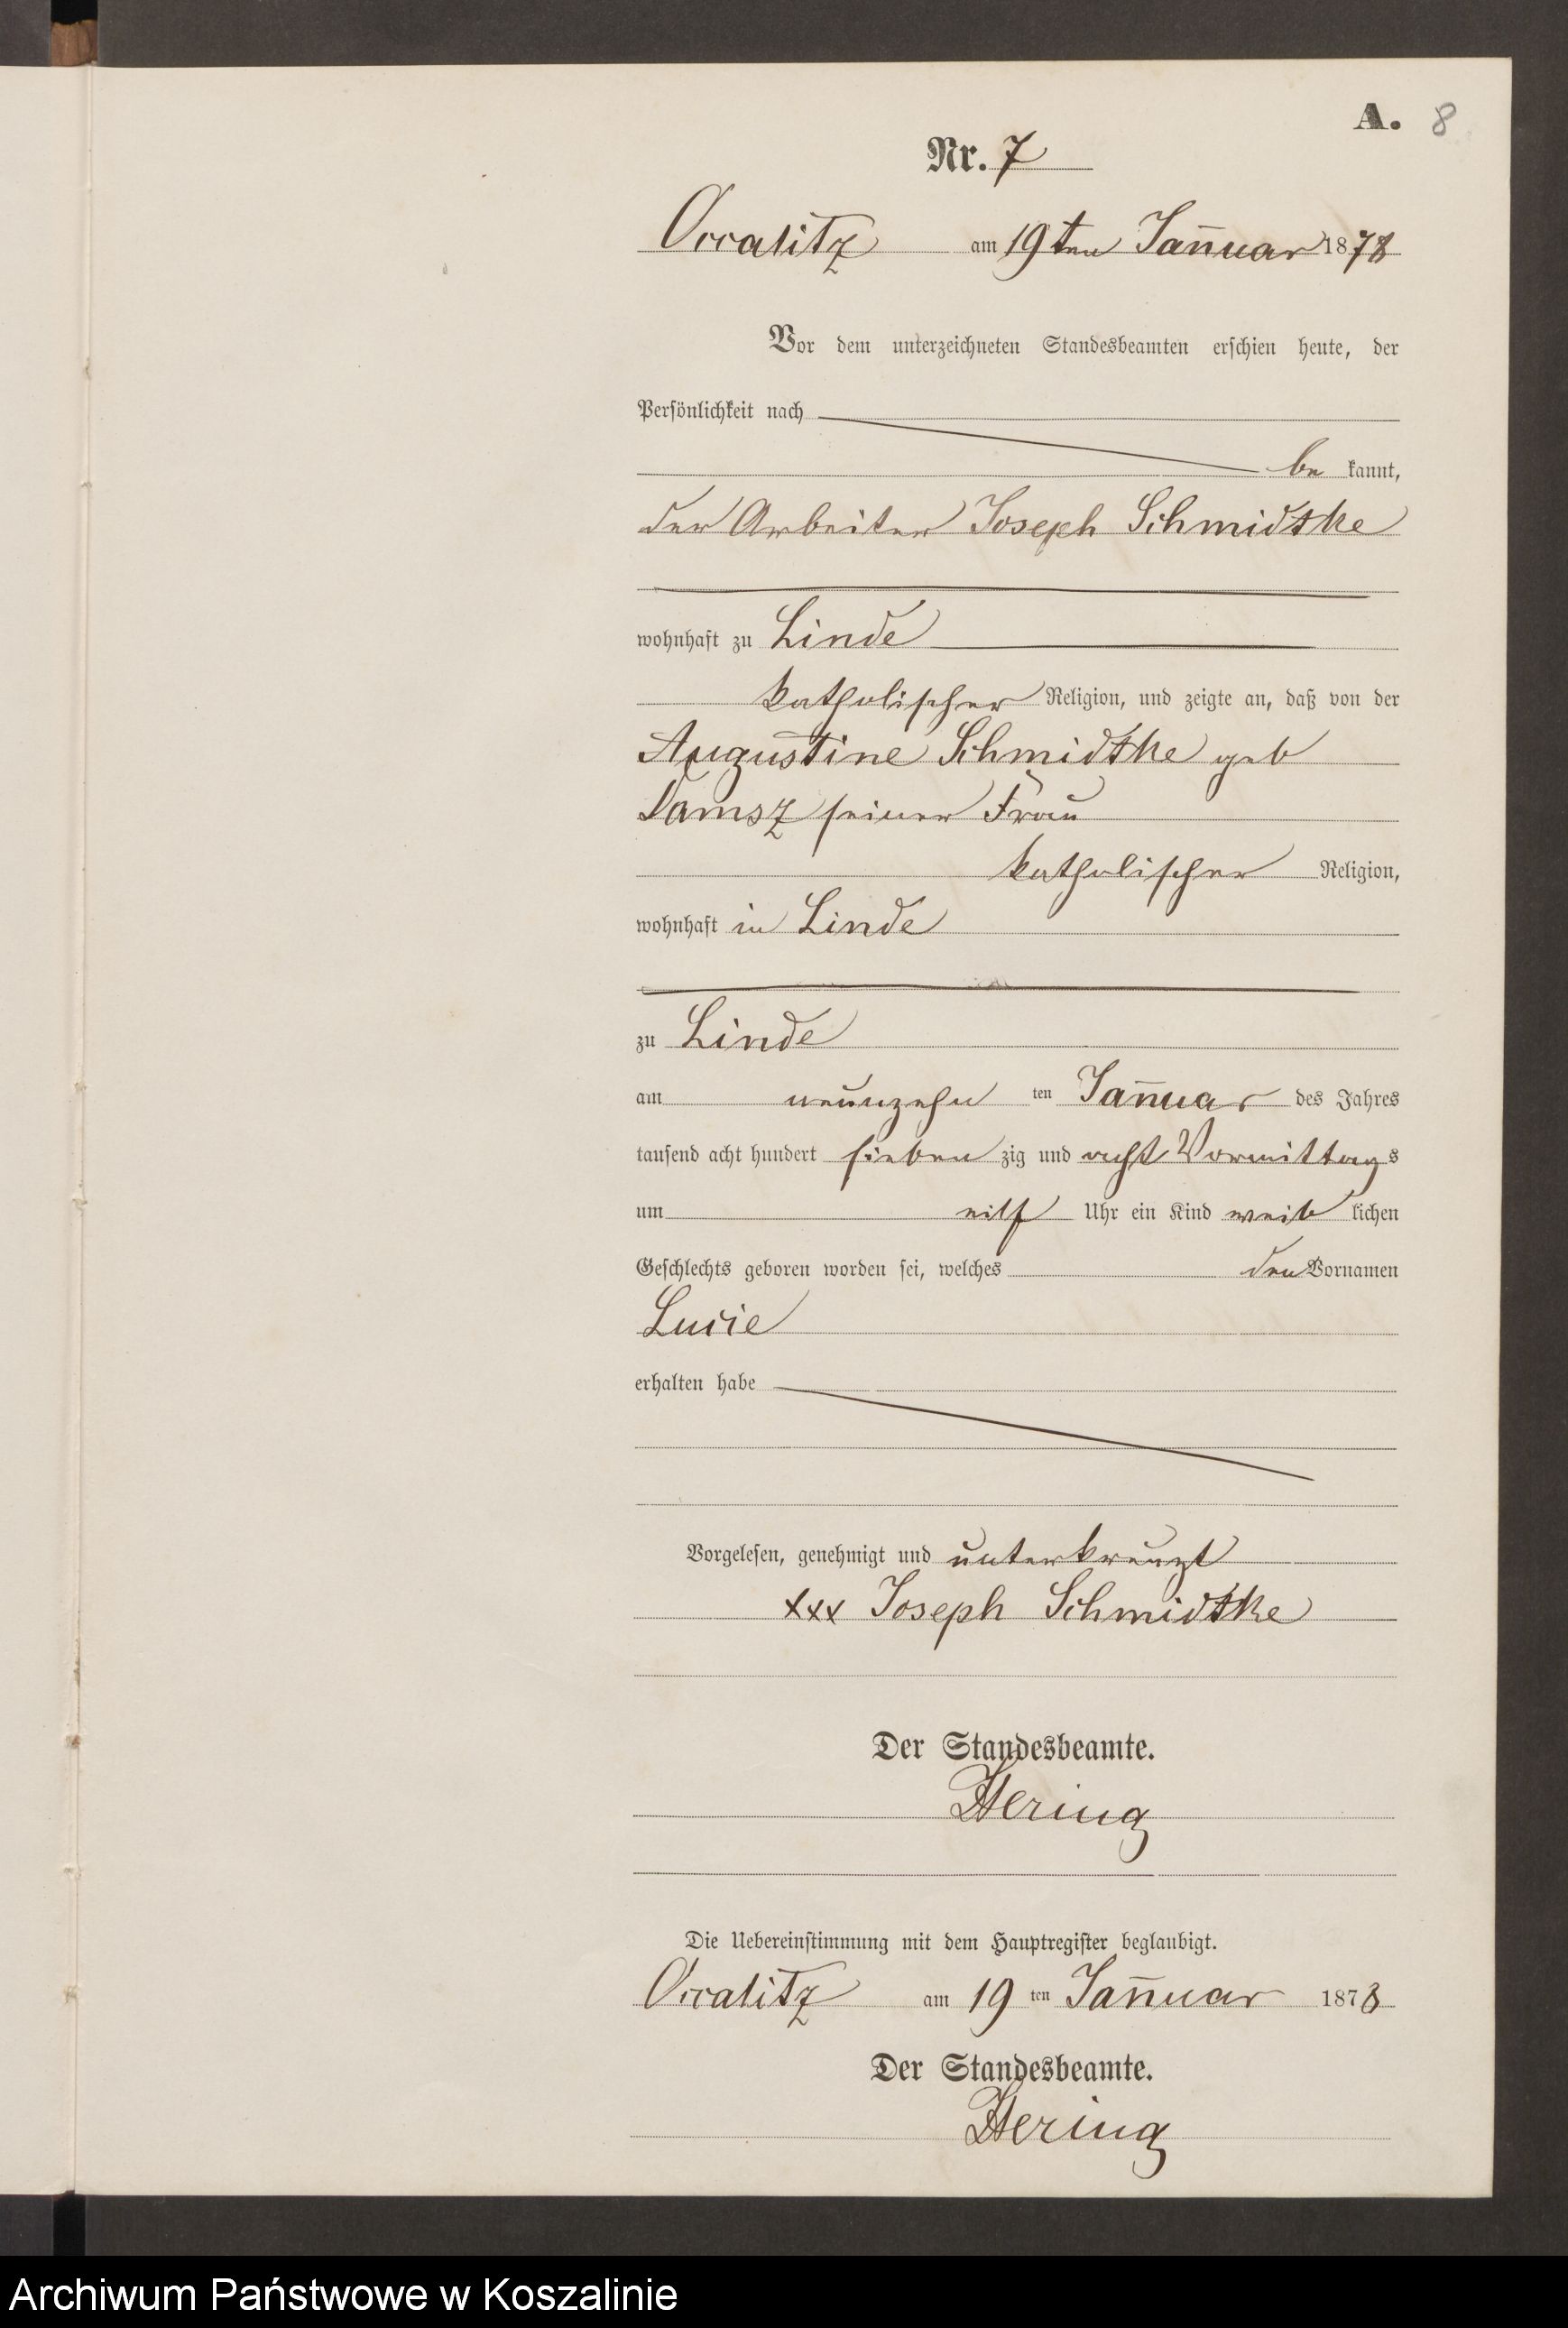 A. 8
Nr. 7
Occalitz am 19ten Jan̄uar 1878
Vor dem unterzeichneten Standesbeamten erschien heute, der
Persönlichkeit nach
be kannt,
der Arbeiter Joseph Schmidtke
wohnhaft zu Linde
katholischer Religion, und zeigte an, daß von der
Augustine Schmidtke geb
seiner Frau
katholischer Religion,
wohnhaft in Linde
zu Linde
am neunzehn ten Jan̄uar des Jahres
tausend acht hundert sieben zig und acht Vormittags
um eilf Uhr ein Kind weib lichen
Geschlechts geboren worden sei, welches den Vornamen
Lucie
erhalten habe
Vorgelesen, genehmigt und unterkreuzt
xxx Joseph Schmidtke
Der Standesbeamte.
Hering
Die Uebereinstimmung mit dem Hauptregister beglaubigt.
Occalitz am 19 ten Jan̄uar 1878
Der Standesbeamte.
Hering
Archiwum Państwowe w Koszalinie